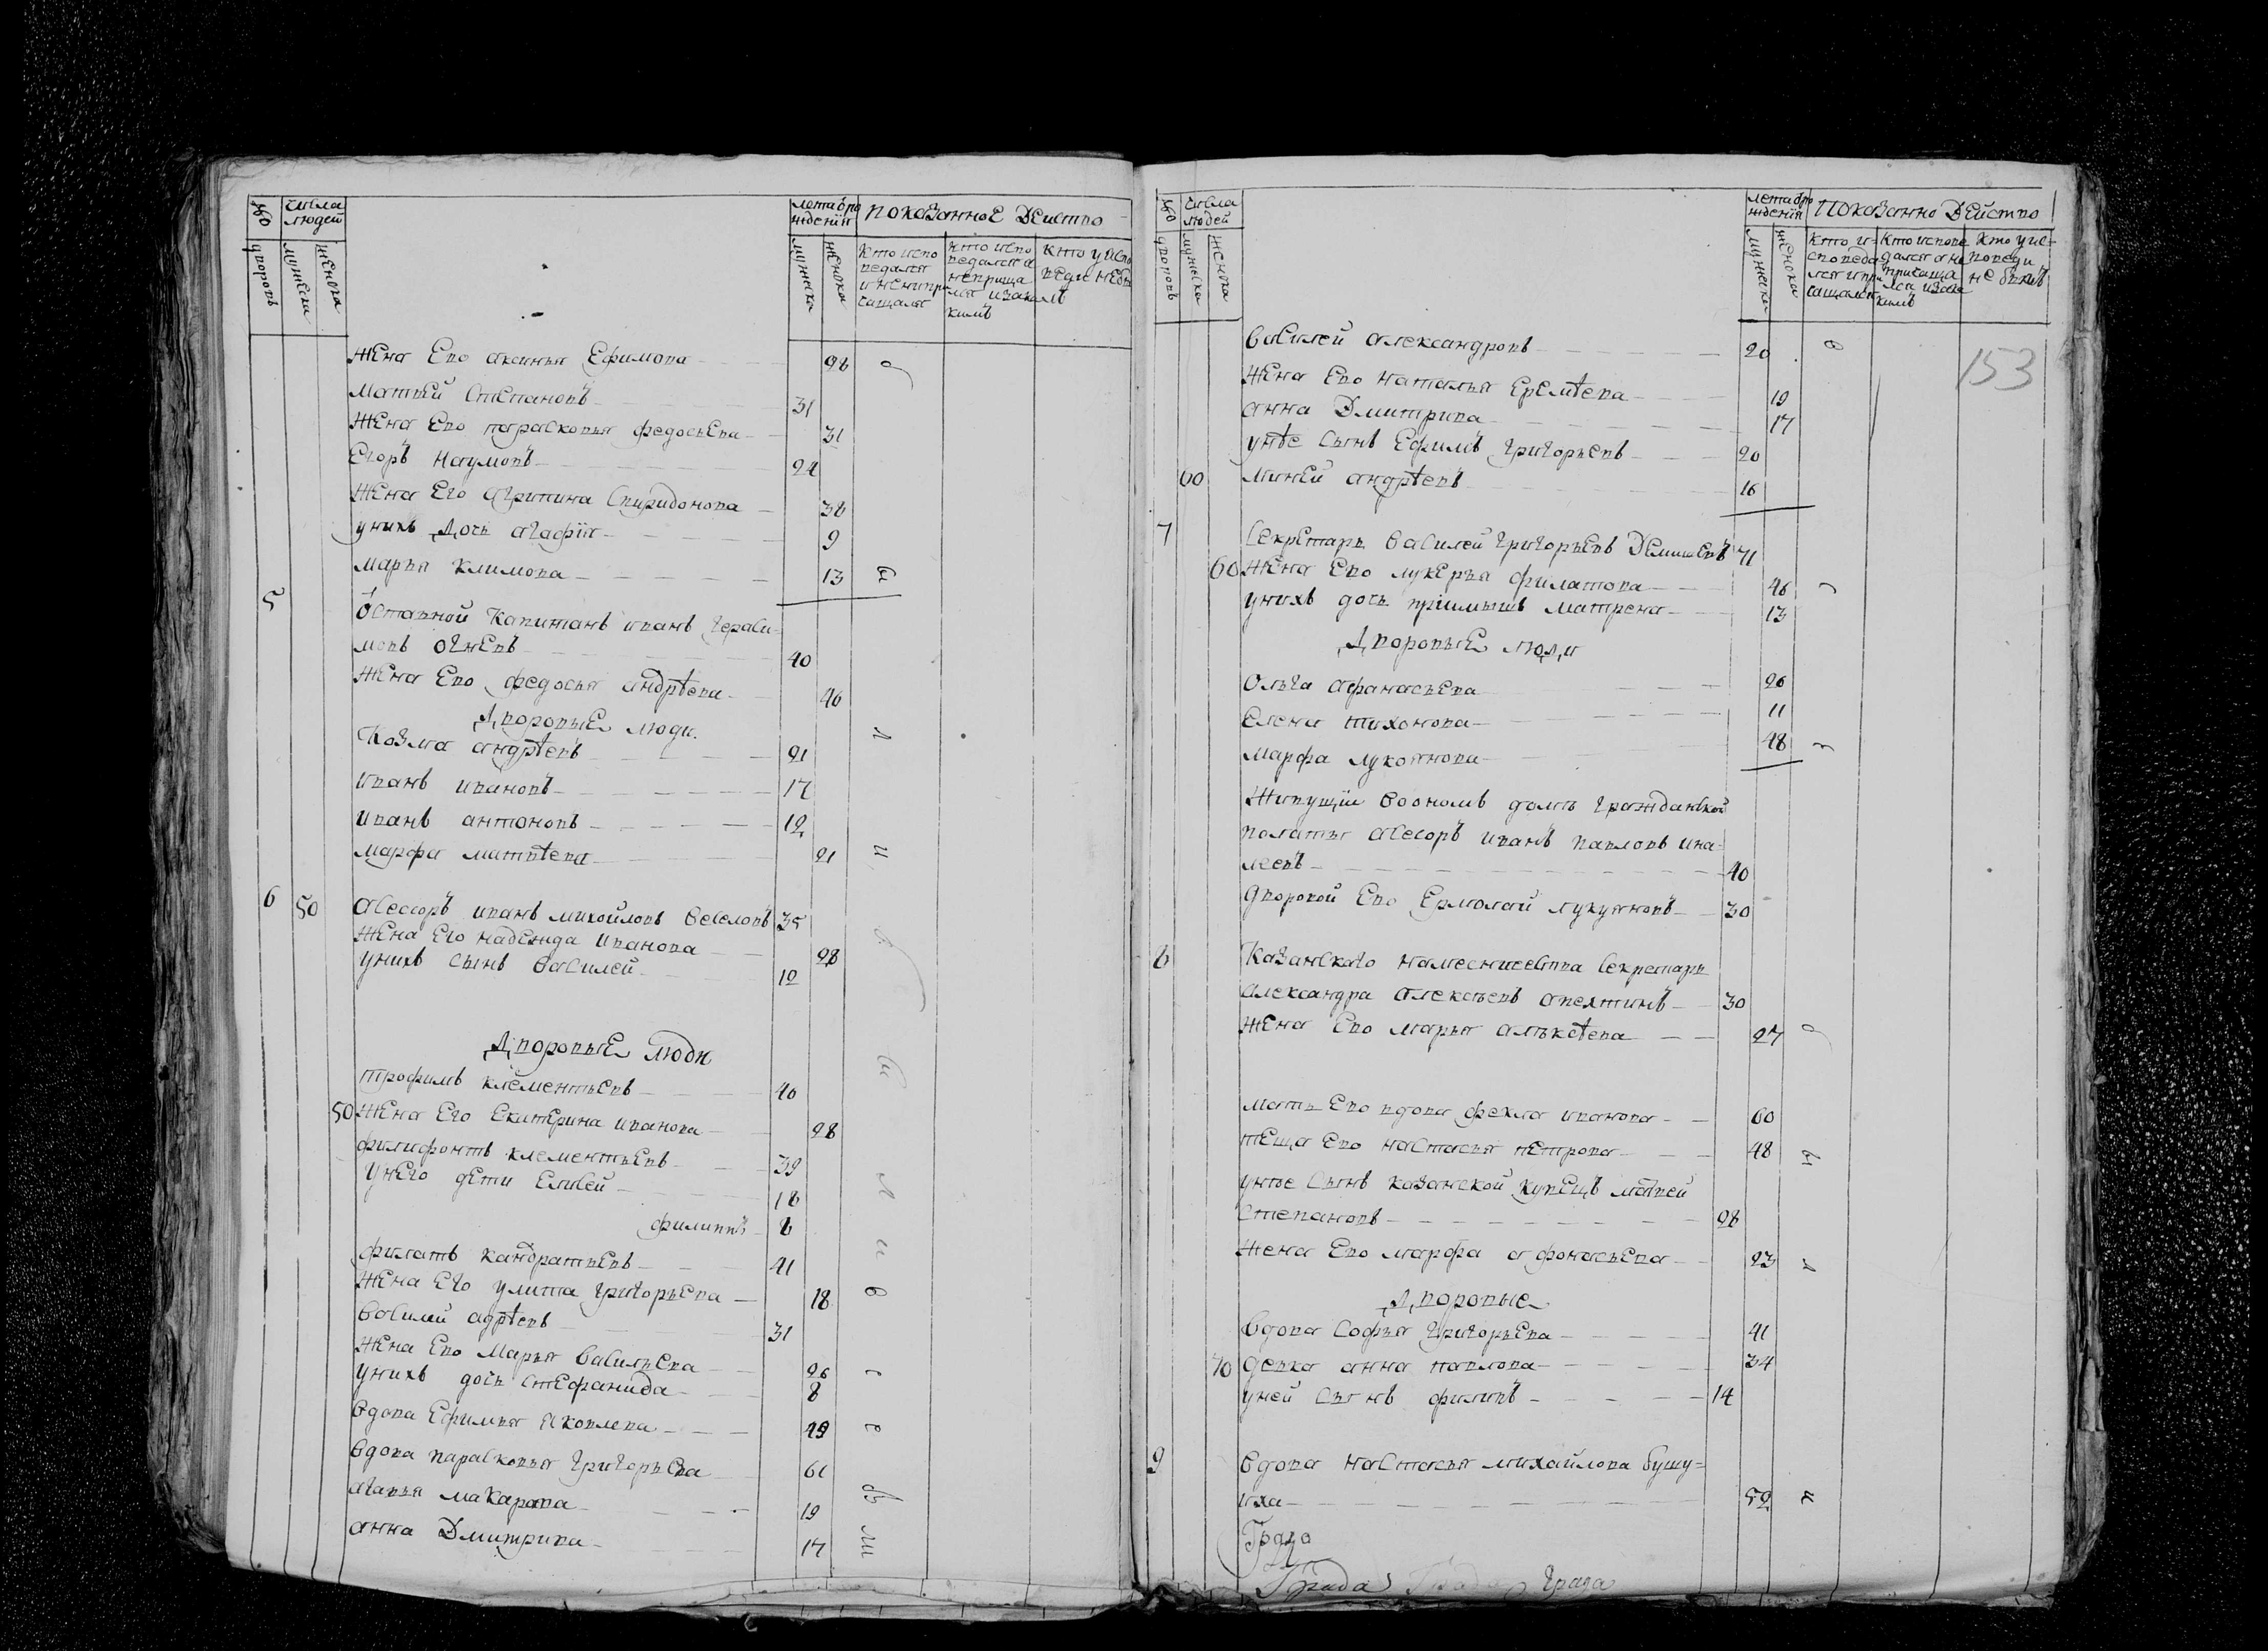 число людей
лета от рождения
показанное действо
дворовъ
мужеска
женска
мужеска
женска
кто исповедался и неприщался
жена ево аксинья Ефимова 28
матвей степановъ 31
жена ево парасковья федосьева 31
Егоръ наумовъ 24
жена его агрипина спиридонова 38
унихъ дочь агафiя 9
марья климова 13
5 отставной капитанъ иванъ гераси=
мовъ огневъ 40
жена ево федосья андрѣева 46
дворовые люди
козма андрѣевъ 21
иванъ ивановъ 17
иванъ антоновъ 12
марфа матвѣева 21
6 50 асессоръ иванъ михойловъ веселовъ 35
жена его надежда иванова 28
унихъ сынъ василей 12
дворовые люди
трофимъ клементьевъ 40
50 жена его екатерина иванова 28
филифонтъ клементьевъ 39
унего дети елисей 18
филиппъ 8
филатъ кандратьевъ 41
жена его улита григорьева 18
василий адрѣевъ 31
жена ево марья васильева 26
унихъ дочь стефанида 8
вдова ефимья яковлева 49
вдова парасковья григорьева 61
агапья макарова 19
анна дмитрива 17
число людей
лета от рождения
показанно действо
дворовъ
мужеска
женска
мужеска
женска
кто исповедался и прищался
кто уисповеди не былъ
153
василей александровъ 20
жена ево наталья еремѣева 19
анна дмитрива 17
унѣе сынъ ефимъ григорьевъ 20
60 миней андрѣевъ 16
7 секретарь василей григорьевъ демишевъ 71
60 жена ево лукерья филатова 46
унихъ дочь прiимышъ матрена 13
дворовые люди
ольга афанасьева 26
елена тихонова 11
марфа лукоянова 48
живущiи воономъ доме гражданской
полаты асесоръ иванъ павловъ
40
дворовой ево ермолай лукуяновъ 30
8 казанскаго намесничества секретарь
александра алексѣевъ апехтинъ 30
жена ево марья алѣксѣева 27
мать ево вдова фекла иванова 60
теща ево настасья петрова 48
унѣе сынъ казанской купецъ матвей
степановъ 28
жена ево марфа афонасьева 23
дворовые
вдова софья григорьева 41
70 девка анна павлова 34
уней сынъ филипъ 14
9 вдова настасья михайлова бушу=
иха 52
града
града града града